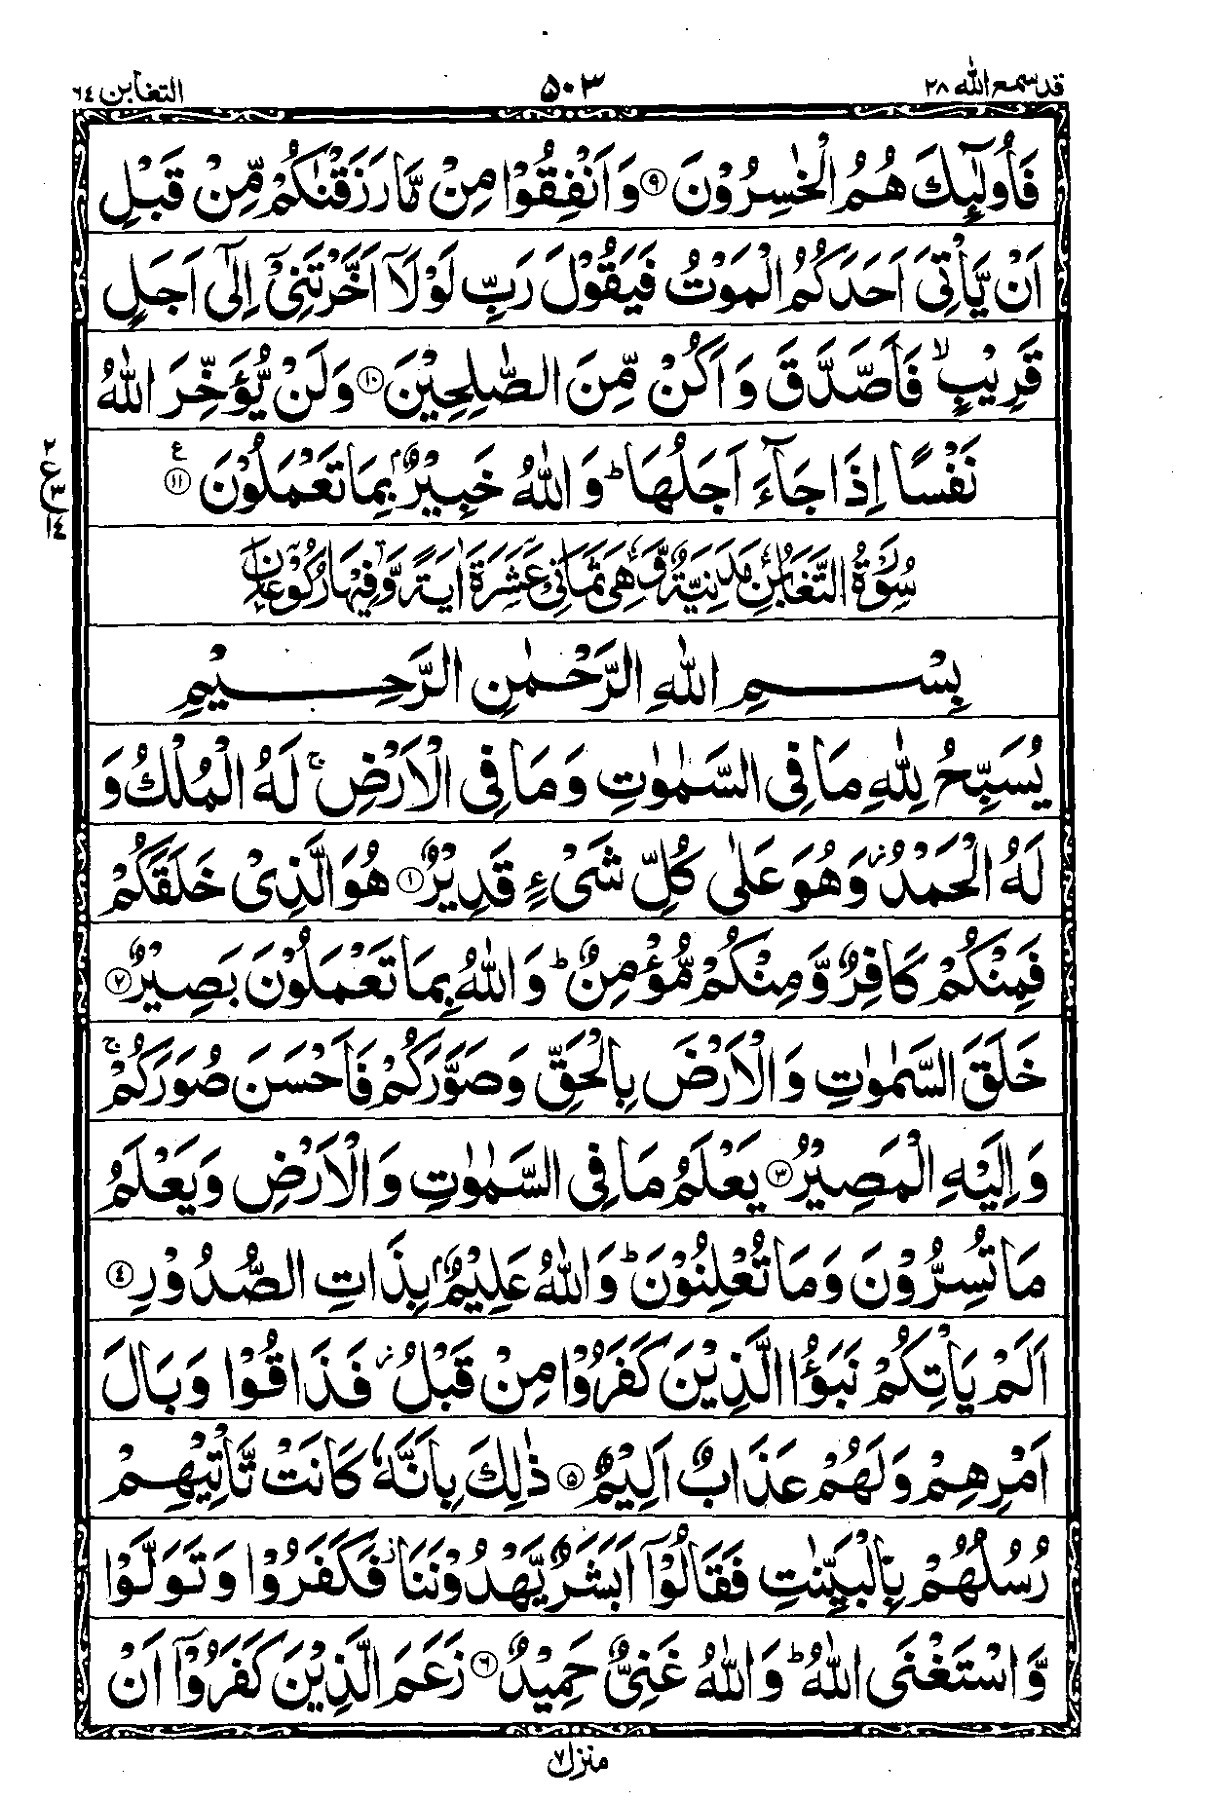 قد سمع الله ٢٨ ٥٠٣ التغابن ٦٤
فَاُولٰٓئِكَ هُمُ الْخٰسِرُوْنَ ۝٩ وَاَنْفِقُوْا مِنْ مَّا رَزَقْنٰكُمْ مِّنْ قَبْلِ
اَنْ يَّاْتِيَ اَحَدَكُمُ الْمَوْتُ فَيَقُوْلَ رَبِّ لَوْلَاۤ اَخَّرْتَنِيْۤ اِلٰۤى اَجَلٍ
قَرِيْبٍ ۙ فَاَصَّدَّقَ وَاَكُنْ مِّنَ الصّٰلِحِيْنَ ۝١٠ وَلَنْ يُّؤَخِّرَ اللّٰهُ
نَفْسًا اِذَا جَآءَ اَجَلُهَا ؕ وَاللّٰهُ خَبِيْرٌۢ بِمَا تَعْمَلُوْنَ ۝١١ ع
٢ ع ٣ ١٤
سُوْرَةُ التَّغَابُنِ مَدَنِيَّةٌ وَّهِيَ ثَمَانِيْ عَشْرَةَ اٰيَةً وَّفِيْهَا رُكُوْعَانِ
بِسْمِ اللّٰهِ الرَّحْمٰنِ الرَّحِيْمِ
يُسَبِّحُ لِلّٰهِ مَا فِي السَّمٰوٰتِ وَمَا فِي الْاَرْضِ ۚ لَهُ الْمُلْكُ وَ
لَهُ الْحَمْدُ ز وَهُوَ عَلٰى كُلِّ شَيْءٍ قَدِيْرٌ ۝١ هُوَ الَّذِيْ خَلَقَكُمْ
فَمِنْكُمْ كَافِرٌ وَّمِنْكُمْ مُّؤْمِنٌ ؕ وَاللّٰهُ بِمَا تَعْمَلُوْنَ بَصِيْرٌ ۝٢
خَلَقَ السَّمٰوٰتِ وَالْاَرْضَ بِالْحَقِّ وَصَوَّرَكُمْ فَاَحْسَنَ صُوَرَكُمْ ۚ
وَاِلَيْهِ الْمَصِيْرُ ۝٣ يَعْلَمُ مَا فِي السَّمٰوٰتِ وَالْاَرْضِ وَيَعْلَمُ
مَا تُسِرُّوْنَ وَمَا تُعْلِنُوْنَ ؕ وَاللّٰهُ عَلِيْمٌۢ بِذَاتِ الصُّدُوْرِ ۝٤
اَلَمْ يَاْتِكُمْ نَبَؤُا الَّذِيْنَ كَفَرُوْا مِنْ قَبْلُ ز فَذَاقُوْا وَبَالَ
اَمْرِهِمْ وَلَهُمْ عَذَابٌ اَلِيْمٌ ۝٥ ذٰلِكَ بِاَنَّهٗ كَانَتْ تَّاْتِيْهِمْ
رُسُلُهُمْ بِالْبَيِّنٰتِ فَقَالُوْۤا اَبَشَرٌ يَّهْدُوْنَنَا ز فَكَفَرُوْا وَتَوَلَّوْا
وَّاسْتَغْنَى اللّٰهُ ؕ وَاللّٰهُ غَنِيٌّ حَمِيْدٌ ۝٦ زَعَمَ الَّذِيْنَ كَفَرُوْۤا اَنْ
منزل ٧